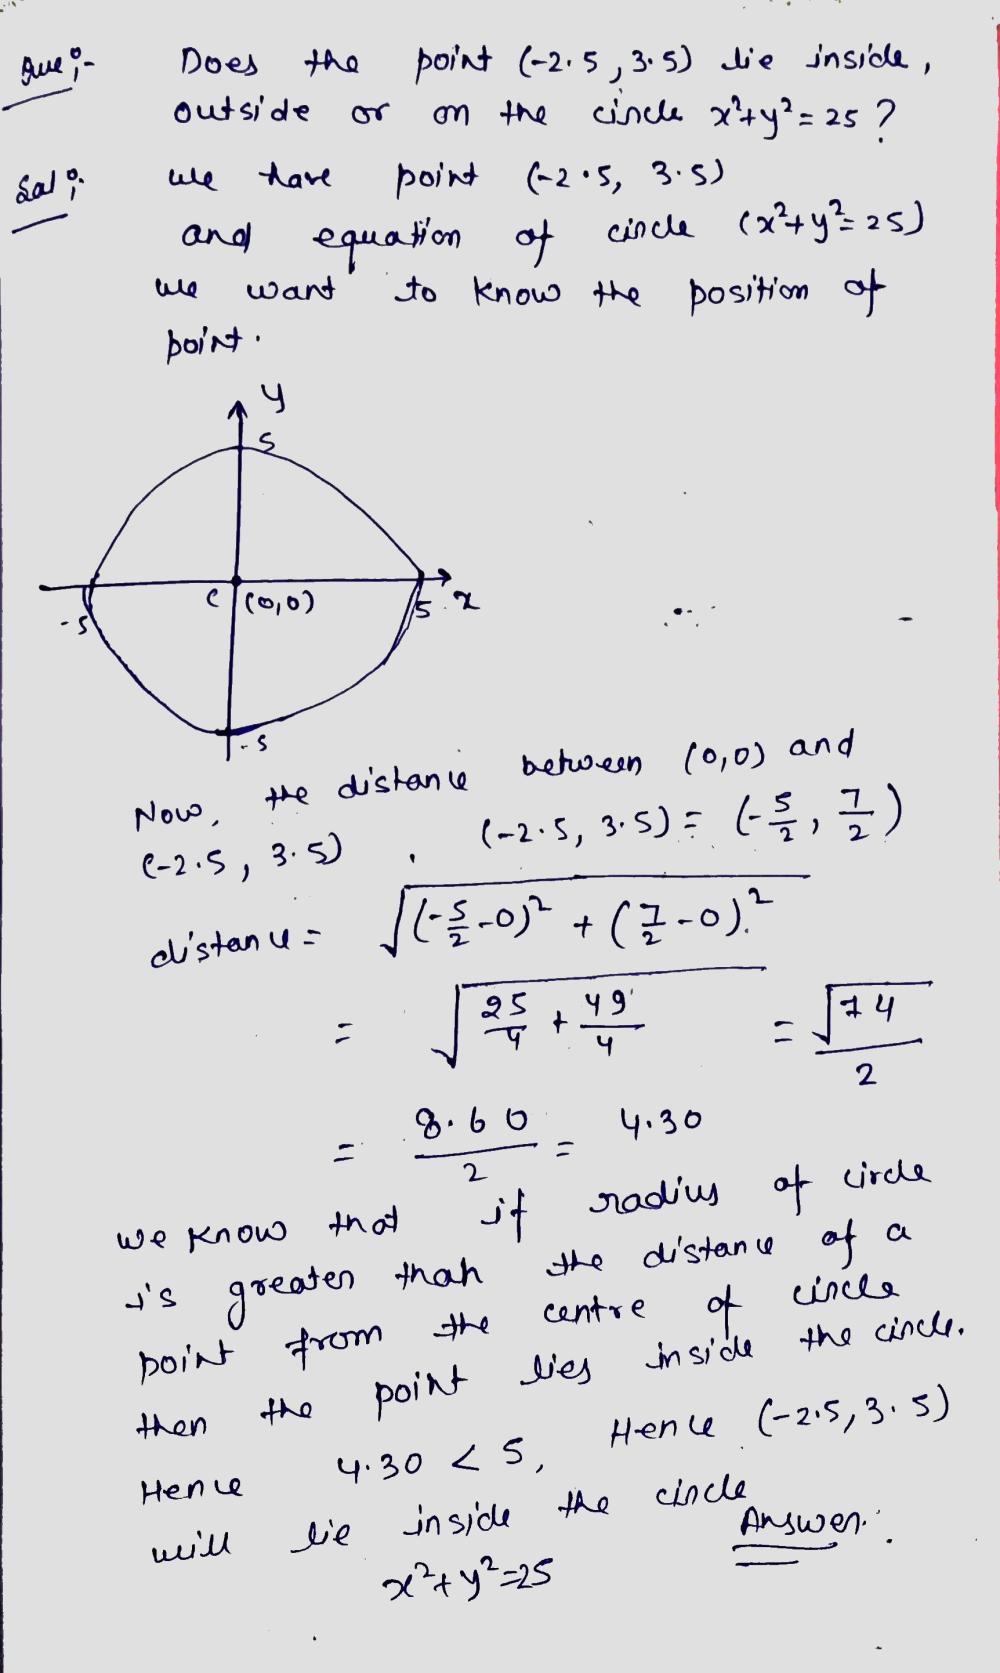 Que:- Does the point (-2.5, 3.5) lie inside,
outside or on the circle x²+y² = 25 ?
Sol:- we have point (-2.5, 3.5)
and equation of circle (x²+y²=25)
we want to know the position of
point.
y
5
C (0,0)
-5
5 x
-5
Now, the distance between (0,0) and
(-2.5, 3.5) . (-2.5, 3.5) = (-5/2, 7/2)
distance = √((-5/2-0)² + (7/2-0)²)
= √(25/4 + 49/4) = √74/2
= 8.60/2 = 4.30
we know that if radius of circle
is greater than the distance of a
point from the centre of circle
then the point lies inside the circle.
Hence 4.30 < 5, Hence (-2.5, 3.5)
will lie inside the circle
x²+y²=25 Answer.